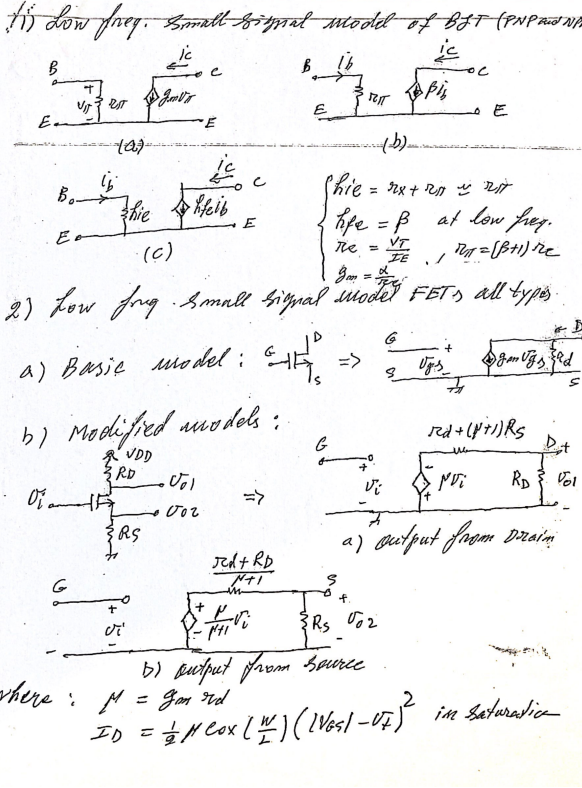 1) Low freq. small signal model of BJT (PNP and NP
B + vπ - rπ gmvπ ic C
E E
(a)
B ib rπ βib ic C
E E
(b)
B ib hie hfeib ic C
E E
(c)
hie = rx + rπ ≃ rπ
hfe = β at low freq.
re = VT/IE , rπ = (β+1) re
gm = α/re
2) Low freq. small signal model FETs all types
a) Basic model : G D S => G vgs + - S gmvgs rd D S
b) Modified models :
VDD
RD
vi vo1
vo2
RS
=>
rd+(μ+1)RS
G + vi - + μvi RD D + vo1 -
a) output from Drain
rd + RD / μ+1
G + vi - + - μ/μ+1 vi RS S + vo2 -
b) output from source
where : μ = gm rd
ID = 1/2 μ Cox (W/L) (|VGS| - vt)² in saturation